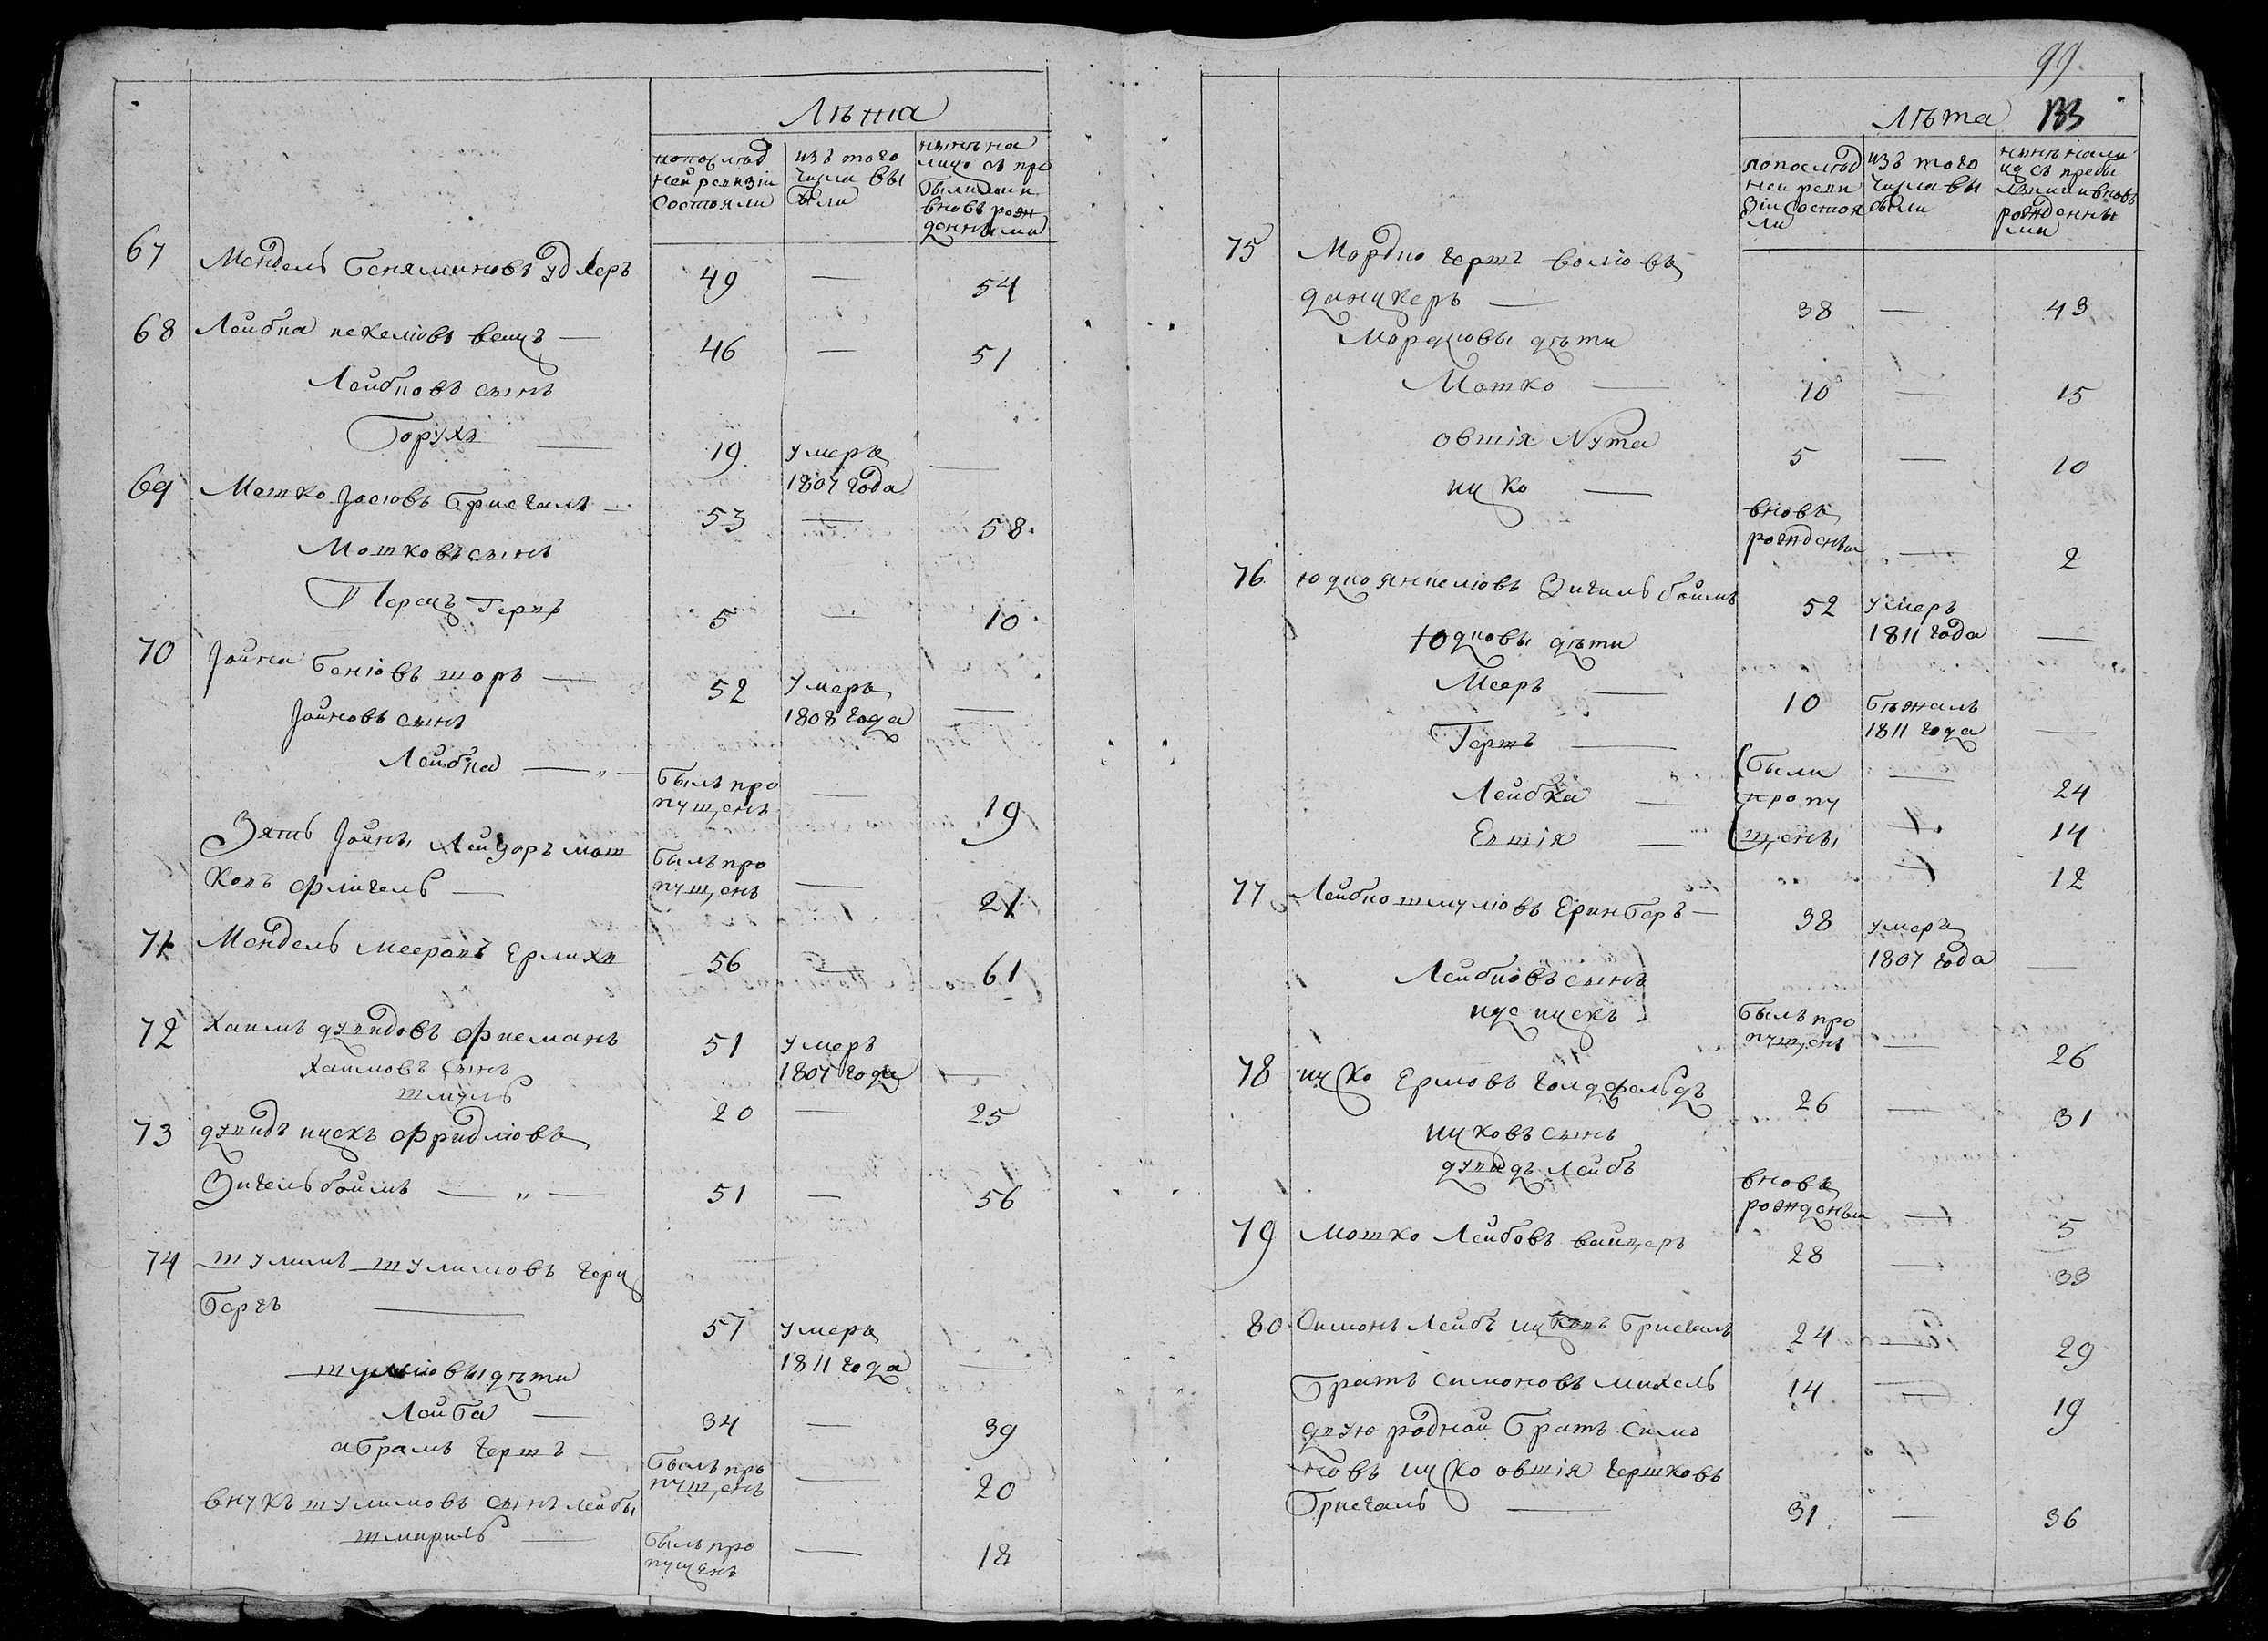 99
133
Лѣта
попослѣд ней ревизіи состояли
изъ того числа вы были
нынѣ на лицо съ при былыми и вновь рожденными
67 Мендель Беняминовъ Удлеръ 49 — 54
68 Лейбка
венцъ — 46 — 51
Лейбковъ сынъ
Борухъ — 19 умеръ 1807 года —
69 Мошко Іосіовъ Брисгалъ — 53 — 58
Мошковъ сынъ
Перецъ Герцъ 5 — 10
70 Іойна Беніовъ шоръ — 52 умеръ 1808 года —
Іойновъ сынъ
Лейбка — „ — былъ пропущенъ — 19
Зять Іойны Лейзоръ Мошковъ флигель — былъ пропущенъ — 21
71 Мендель Мееровъ Ерлихъ 56 — 61
72 Хаимъ дувидовъ Фисманъ 51 умеръ 1807 года —
Хаимовъ сынъ
шмуль 20 — 25
73 дувидъ ицекъ Фридліовъ
Зигельбоймъ — „ — 51 — 56
74 шулимъ шулимовъ герц
бергъ — 57 умеръ 1811 года —
шулимовы дѣти
Лейба — 34 — 39
абрамъ гершъ — былъ пропущенъ — 20
внукъ шулимовъ сынъ лейбы
шмериль — былъ пропущенъ — 18
Лѣта
попослѣд ней реви зіи состоя ли
изъ того числа вы были
нынѣ нали цо съ прибы лыми и вновь рожденны ми
75 Мордко гершъ воліовъ
данцкеръ — 38 — 43
Мордковы дѣти
Мошко — 10 — 15
овшія Нута 5 — 10
ицко — вновь рожденъ — 2
76 юдко янкеліовъ Зигильбоймъ 52 умеръ 1811 года —
Юдковы дѣти
Мееръ — 10 бѣжалъ 1811 года —
Гершъ — были пропущены — 24
Лейбка — 14
Евшія — 12
77 Лейбко шмуліовъ Еринберъ — 38 умеръ 1807 года —
Лейбковъ сынъ
ицекъ былъ пропущенъ — 26
78 ицко Ермовъ голдфельдъ 26 — 31
ицковъ сынъ
дувидъ лейбъ вновь рожденъ — 5
79 Мошко Лейбовъ вайцеръ 28 — 33
80 Симонъ Лейбъ ицковъ Брисгаль 24 — 29
Братъ симоновъ михель 14 — 19
двуюродной братъ симо
новъ ицко овшія гершковъ
Брисгаль — 31 — 36